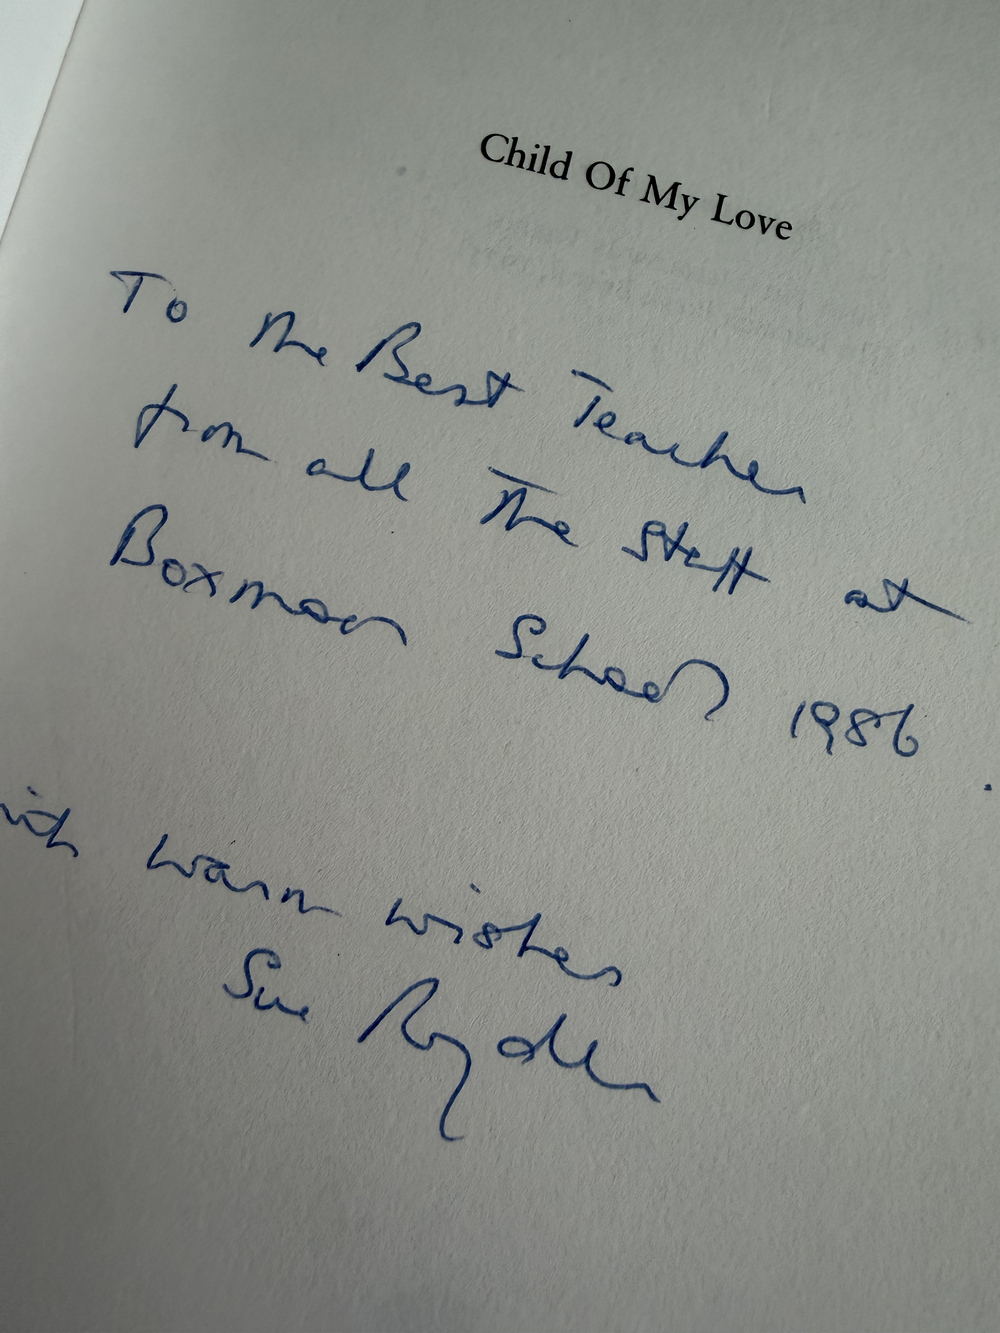 Child Of My Love
To the Best Teacher
from all the Staff at
Boxmoor School 1986.
with warm wishes
Sue Ryder